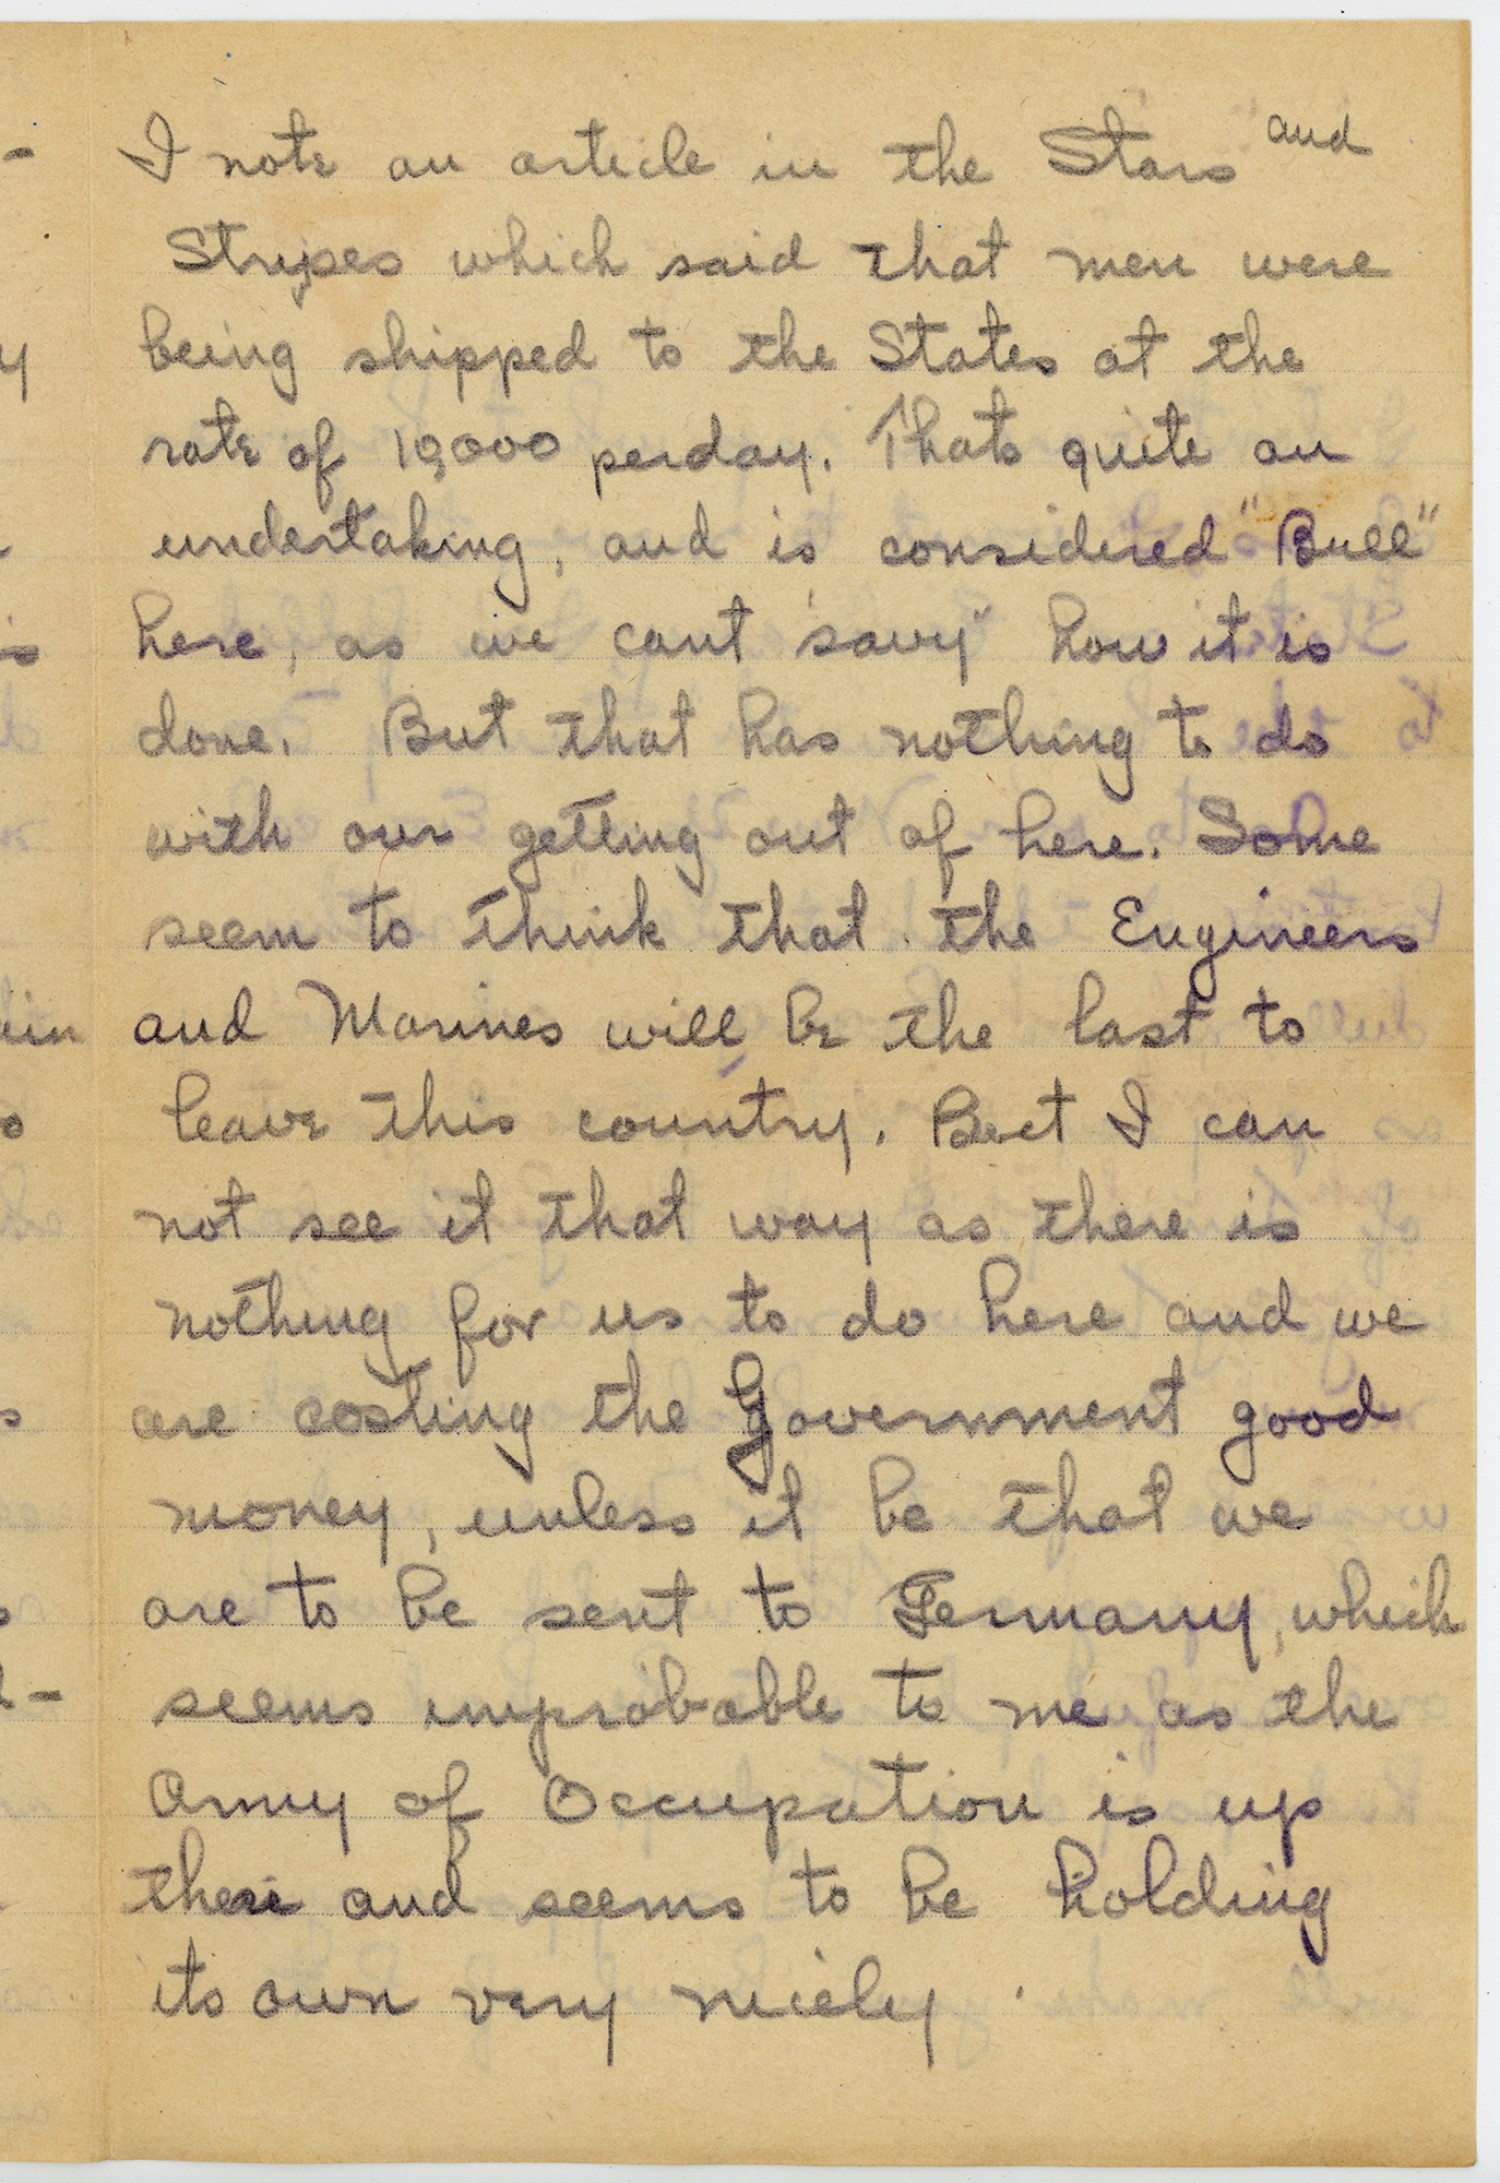 I note an article in the Stars and
Stripes which said that men were
being shipped to the States at the
rate of 10,000 perday. Thats quite an
undertaking, and is considered "Bull"
here, as we cant "savy" how it is
done. But that has nothing to do
with our getting out of here. Some
seem to think that the Engineers
and Marines will be the last to
leave this country. But I can
not see it that way as there is
nothing for us to do here and we
are costing the Government good
money, unless it be that we
are to be sent to Germany, which
seems improbable to me as the
Army of Occupation is up
there and seems to be holding
its own very nicely.